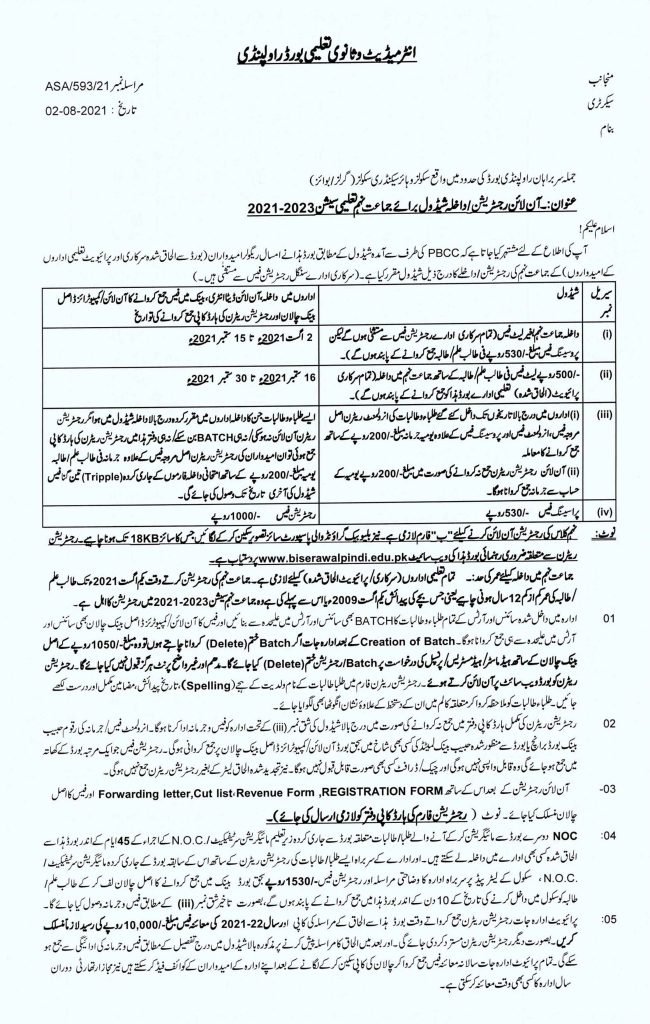 انٹرمیڈیٹ و ثانوی تعلیمی بورڈ راولپنڈی
منجانب
مراسلہ نمبر ASA/593/21
سیکرٹری
تاریخ : 02-08-2021
بنام
جملہ سربراہان راولپنڈی بورڈ کی حدود میں واقع سکولز و ہائر سیکنڈری سکولز (گرلز/بوائز)
عنوان:۔ آن لائن رجسٹریشن/داخلہ شیڈول برائے جماعت نہم تعلیمی سیشن 2021-2023
اسلام علیکم!
آپ کی اطلاع کے لئے مشتہر کیا جاتا ہے کہ PBCC کی طرف سے آمدہ شیڈول کے مطابق بورڈ ہذا نے امسال ریگولر امیدواران (بورڈ سے الحاق شدہ سرکاری اور پرائیویٹ تعلیمی اداروں
کے امیدواروں) کے جماعت نہم کی رجسٹریشن/داخلے کا درج ذیل شیڈول مقرر کیا ہے۔ (سرکاری ادارے سنگل رجسٹریشن فیس سے مستثنیٰ ہیں۔)
سیریل نمبر
شیڈول
اداروں میں داخلہ، آن لائن ڈیٹا انٹری، بینک میں فیس جمع کروانے کا آن لائن/کمپیوٹرائزڈ اصل
بینک چالان اور رجسٹریشن ریٹرن کی ہارڈ کاپی جمع کروانے کی تواریخ
(i)
داخلہ جماعت نہم بغیر لیٹ فیس (تمام سرکاری ادارے رجسٹریشن فیس سے مستثنیٰ ہوں گے لیکن
پروسیسنگ فیس مبلغ -/530 روپے فی طالب علم/طالبہ جمع کروانے کے پابند ہوں گے)۔
2 اگست 2021ء تا 15 ستمبر 2021ء
(ii)
-/500 روپے لیٹ فیس فی طالب علم/طالبہ کے ساتھ جماعت نہم میں داخلہ (تمام سرکاری
پرائیویٹ (الحاق شدہ) تعلیمی ادارے بورڈ ہذا کو جمع کروانے کے پابند ہوں گے)۔
16 ستمبر 2021ء تا 30 ستمبر 2021ء
(iii)
(i) اداروں میں درج بالا تاریخوں تک داخل کئے گئے طلباء و طالبات کی انرولمنٹ ریٹرن اصل
مروجہ فیس، انرولمنٹ فیس اور پروسیسنگ فیس کے علاوہ یومیہ جرمانہ مبلغ -/200 روپے کے ساتھ
جمع کروانے کا معاملہ
(ii) آن لائن رجسٹریشن ریٹرن جمع نہ کروانے کی صورت میں مبلغ -/200 روپے یومیہ کے
حساب سے جرمانہ جمع کروانا ہوگا۔
ایسے طلباء و طالبات جن کا داخلہ اداروں میں مقرر کردہ درج بالا داخلہ شیڈول میں ہوا مگر رجسٹریشن
ریٹرن آن لائن نہ ہو سکی/ نہ ہی BATCH بن سکے/ نہ ہی دفتر ہذا میں رجسٹریشن ریٹرن کی ہارڈ کاپی
جمع ہوئی تو ان امیدواران کی رجسٹریشن ریٹرن اصل مروجہ فیس کے علاوہ جرمانہ فی طالب علم/طالبہ
یومیہ مبلغ -/200 روپے کے ساتھ امتحانی داخلہ فارموں کے جاری کردہ (Tripple) تین گنا فیس
شیڈول کی آخری تاریخ تک وصول کی جائے گی۔
(iv)
پراسیسنگ فیس -/530 روپے
رجسٹریشن فیس -/1000 روپے
نوٹ:۔ نہم کلاس کی رجسٹریشن آن لائن کرنے کیلئے "ب" فارم لازمی ہے۔ نیز بلیو بیک گراؤنڈ والی پاسپورٹ سائز تصویر سکین کر کے لگائیں جس کا سائز 18KB تک ہونا چاہیے۔ رجسٹریشن
ریٹرن سے متعلقہ ضروری رہنمائی بورڈ ہذا کی ویب سائیٹ www.biserawalpindi.edu.pk پر دستیاب ہے۔
جماعت نہم میں داخلہ کیلئے عمر کی حد:۔ تمام تعلیمی اداروں (سرکاری/پرائیویٹ الحاق شدہ) کیلئے لازمی ہے۔ جماعت نہم کی رجسٹریشن کرتے وقت یکم اگست 2021ء تک طالب علم
/طالبہ کی عمر کم از کم 12 سال ہونی چاہیے یعنی جس بچے کی پیدائش یکم اگست 2009ء یا اس سے پہلے کی ہے وہ جماعت نہم سیشن 2021-2023 میں رجسٹریشن کا اہل ہے۔
01 ادارہ میں داخل شدہ سائنس اور آرٹس کے تمام طلباء و طالبات کا BATCH بھی سائنس اور آرٹس میں علیحدہ سے بنانا ہوگا اور رجسٹریشن فیس کا آن لائن/کمپیوٹرائزڈ اصل بینک چالان بھی سائنس اور
آرٹس میں علیحدہ سے ہی جمع کروانا ہوگا۔ Creation of Batch کے بعد ادارہ جات اگر Batch ختم (Delete) کروانا چاہتے ہوں تو وہ مبلغ -/1050 روپے کے اصل
بینک چالان کے ساتھ ہیڈ ماسٹر/ہیڈ مسٹریس/پرنسپل کی درخواست پر Batch/رجسٹریشن ختم (Delete) کیا جائے گا۔ مدہم اور غیر واضح پرنٹ ہرگز قبول نہیں کیا جائے گا۔ رجسٹریشن
ریٹرن کو بورڈ ویب سائٹ پر آن لائن کرتے ہوئے۔ رجسٹریشن ریٹرن فارم میں طلباء طالبات کے نام ولدیت کے ہجے (Spelling)، تاریخ پیدائش، مضامین مکمل اور درست لکھے
جائیں۔ طلباء و طالبات کو ملاحظہ کروا کر متعلقہ کالم میں ان کے دستخط کے علاوہ نشان انگوٹھا بھی لگوایا جائے۔
02 رجسٹریشن ریٹرن کی مکمل ہارڈ کاپی دفتر میں جمع نہ کروانے کی صورت میں درج بالا شیڈول کی شق نمبر (iii) کے تحت ادارہ کو فیس و جرمانہ ادا کرنا ہوگا۔ انرولمنٹ فیس/جرمانہ کی رقوم حبیب
بینک بورڈ برانچ یا بورڈ سے منظور شدہ حبیب بینک لمیٹڈ کی کسی بھی شاخ میں بحق بورڈ آن لائن/کمپیوٹرائزڈ اصل چالان پر جمع کروانی ہوگی۔ رجسٹریشن فیس جو ایک مرتبہ بورڈ کے کھاتہ
میں جمع ہو جائے گی وہ قابل واپسی نہیں ہوگی اور چیک/ڈرافٹ کسی بھی صورت قابل قبول نہیں ہوگا۔ نیز تجدید شدہ الحاق لیٹر کے بغیر رجسٹریشن ریٹرن جمع نہیں ہوگی۔
03- آن لائن رجسٹریشن کے بعد اس کے ساتھ Forwarding letter,Cut list،Revenue Form ,REGISTRATION FORM اور فیس کا اصل
چالان منسلک کیا جائے۔ نوٹ (رجسٹریشن فارم کی ہارڈ کاپی دفتر کو لازمی ارسال کی جائے)۔
04: NOC دوسرے بورڈ سے مائیگریشن کر کے آنے والے طلباء/طالبات متعلقہ بورڈ سے جاری کردہ زیر تعلیم مائیگریشن سرٹیفکیٹ/.N.O.C کے اجراء کے 45 ایام کے اندر بورڈ ہذا سے
الحاق شدہ کسی بھی ادارے میں داخلہ لے سکتے ہیں۔ اور ادارے کے سربراہ ایسے طلباء/طالبات کی رجسٹریشن ریٹرن کے ساتھ اس کے سابقہ بورڈ کے جاری کردہ مائیگریشن سرٹیفکیٹ/
.N.O.C، سکول کے لیٹر پیڈ پر سربراہ ادارہ کا وضاحتی مراسلہ اور رجسٹریشن فیس -/1530 روپے بحق بورڈ بینک میں جمع کروانے کا اصل چالان لف کر کے طالب علم/
طالبہ کو سکول میں داخل کرنے کی تاریخ کے 10 دن کے اندر بورڈ ہذا میں جمع کروانے کے پابند ہوں گے، بصورت تاخیر شق نمبر (iii) کے مطابق فیس و جرمانہ وصول کیا جائے گا۔
05: پرائیویٹ ادارہ جات رجسٹریشن ریٹرن جمع کرواتے وقت بورڈ ہذا سے الحاق کے مراسلہ کی کاپی اور سال 2021-22 کی معائنہ فیس مبلغ -/10,000 روپے کی رسید لازماً منسلک
کریں۔ بصورت دیگر رجسٹریشن ریٹرن مسترد کر دی جائے گی۔ اور بعد میں الحاق کا مراسلہ پیش کرنے پر مذکورہ بالا شیڈول میں درج تفصیل کے مطابق فیس و جرمانہ کی ادائیگی سے جمع
ہو سکے گی۔ تمام پرائیویٹ ادارہ جات سالانہ معائنہ فیس جمع کروا کر چالان کی کاپی سکین کر کے لگانے کے بعد اپنے ادارہ کے امیدواران کے کوائف فیڈ کر سکتے ہیں نیز مجاز اتھارٹی دوران
سال ادارہ کا کسی بھی وقت معائنہ کر سکتی ہے۔